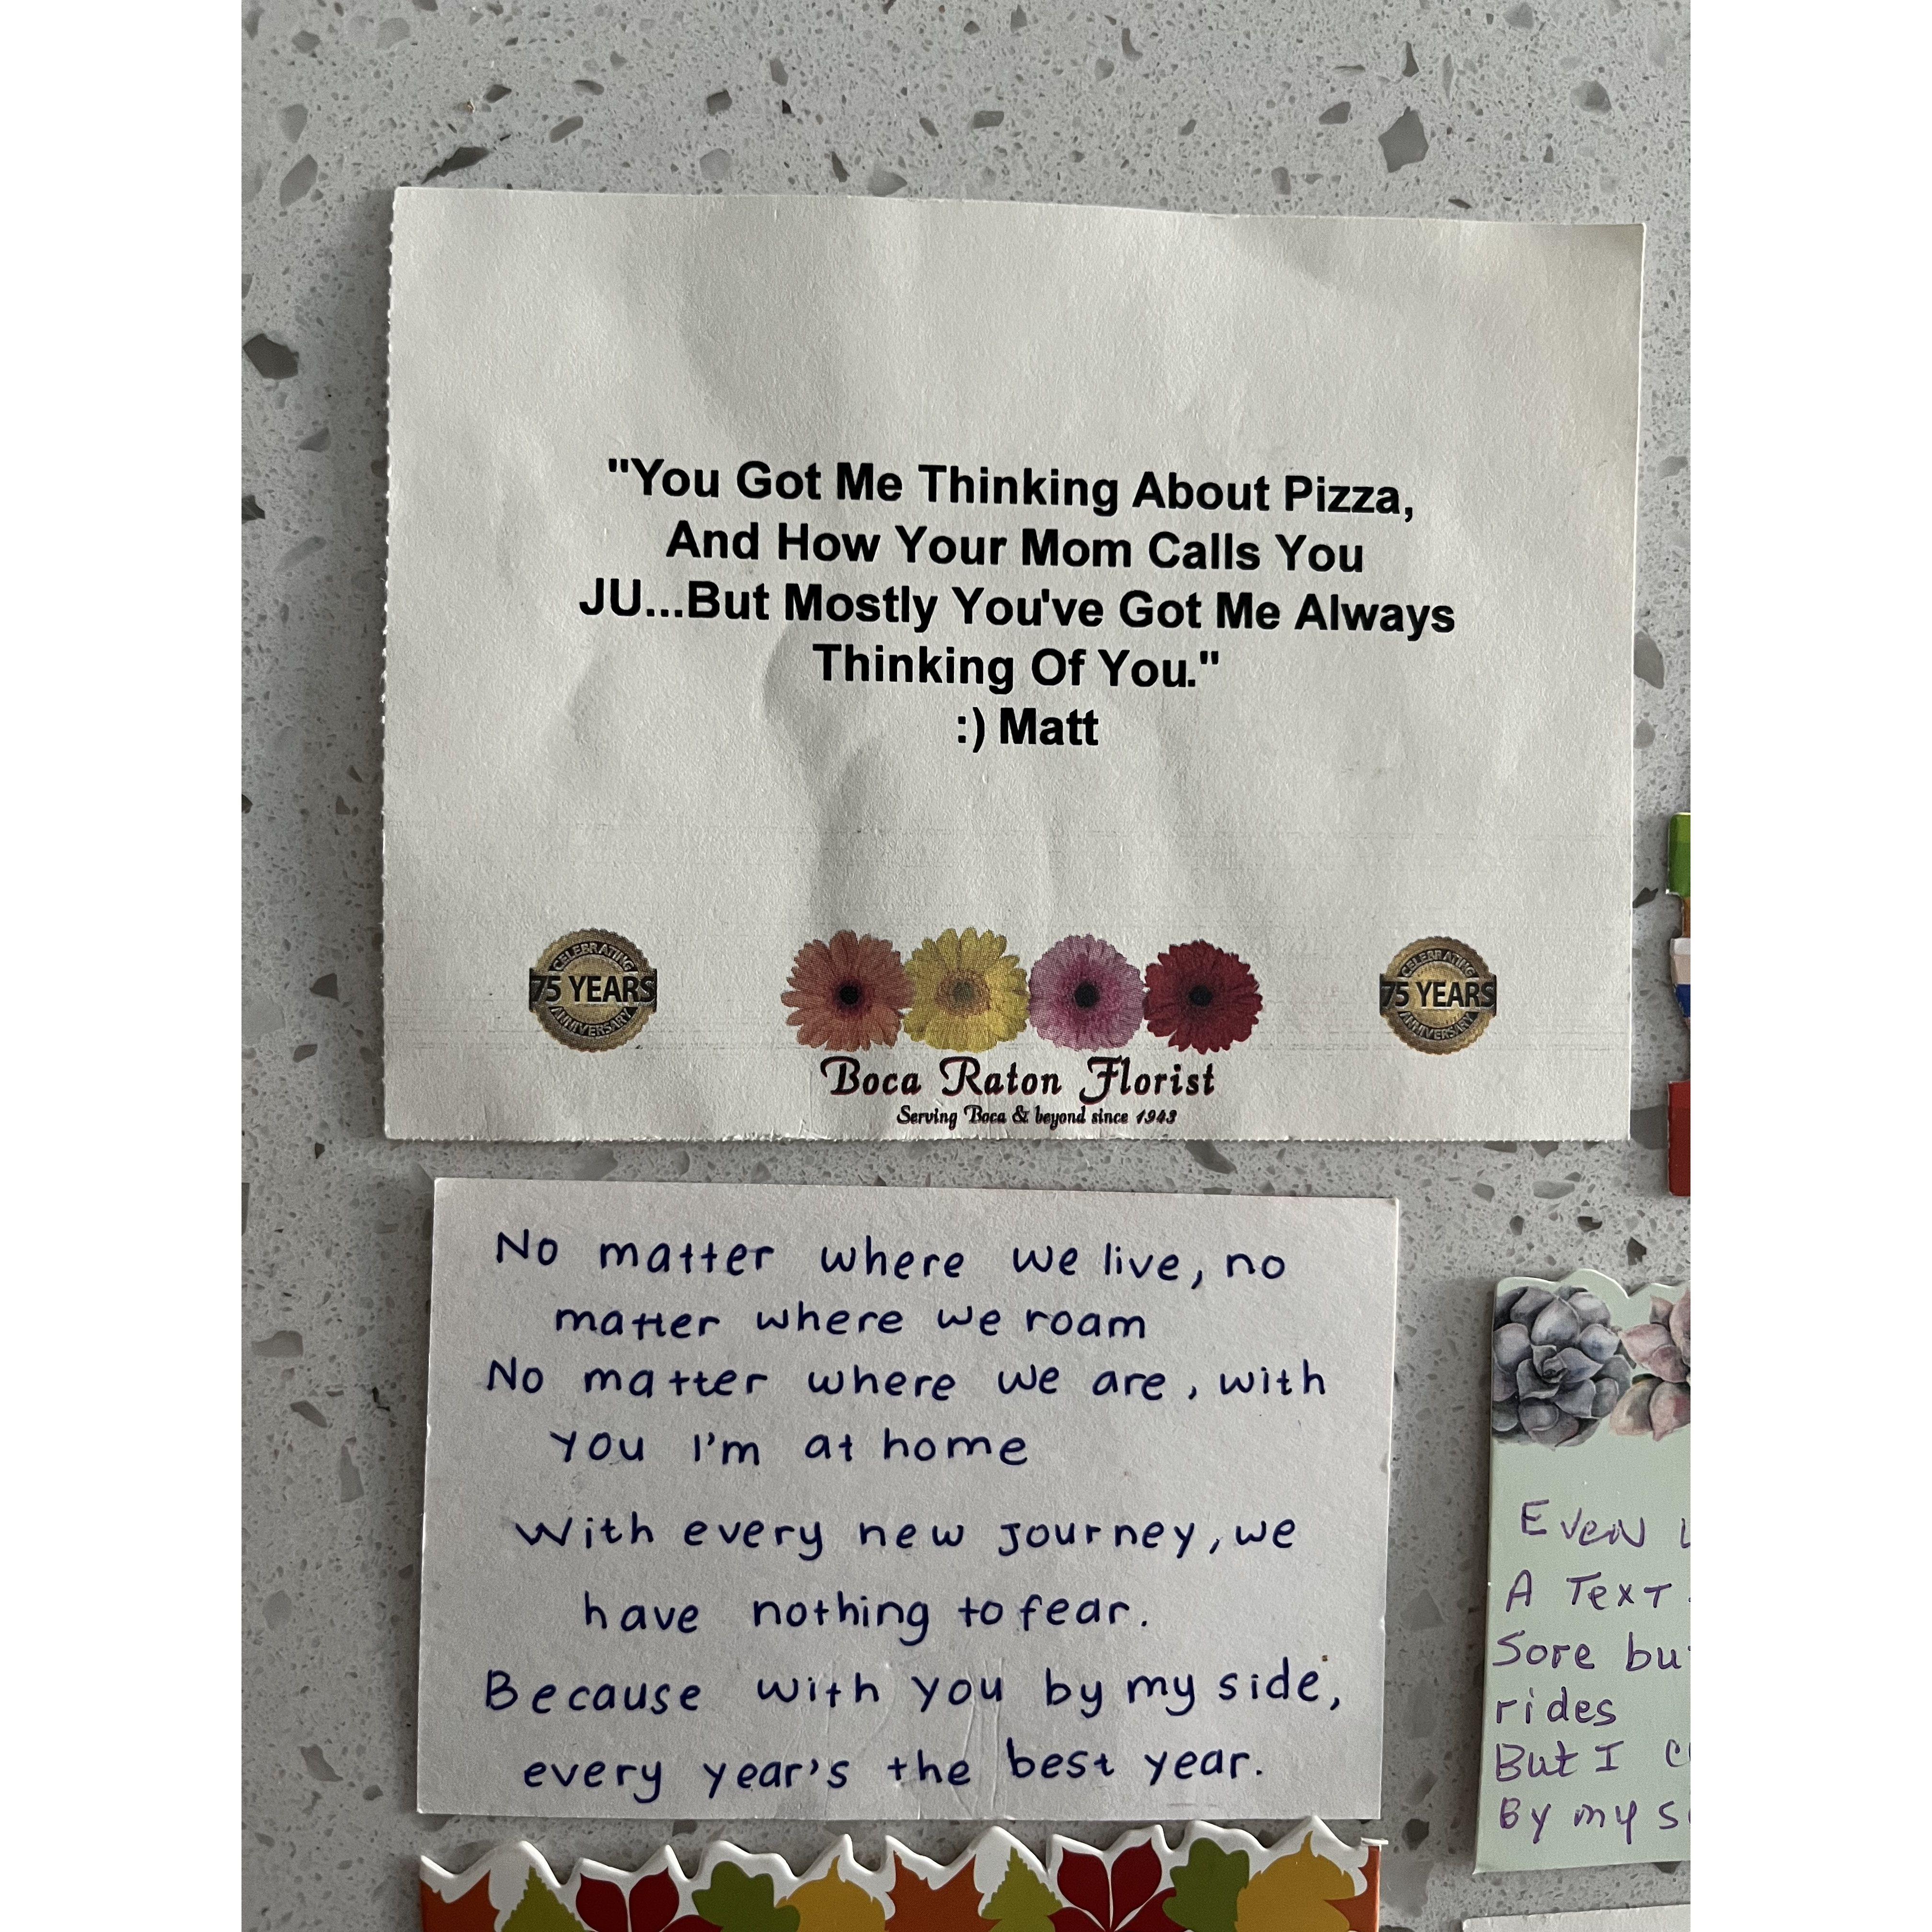 "You Got Me Thinking About Pizza,
And How Your Mom Calls You
JU...But Mostly You've Got Me Always
Thinking Of You."
:) Matt
CELEBRATING
75 YEARS
ANNIVERSARY
CELEBRATING
75 YEARS
ANNIVERSARY
Boca Raton Florist
Serving Boca & beyond since 1943
No matter where we live, no
matter where we roam
No matter where we are, with
you I'm at home
With every new journey, we
have nothing to fear.
Because with you by my side,
every year's the best year.
Even
A Text
Sore
rides
But I
By my